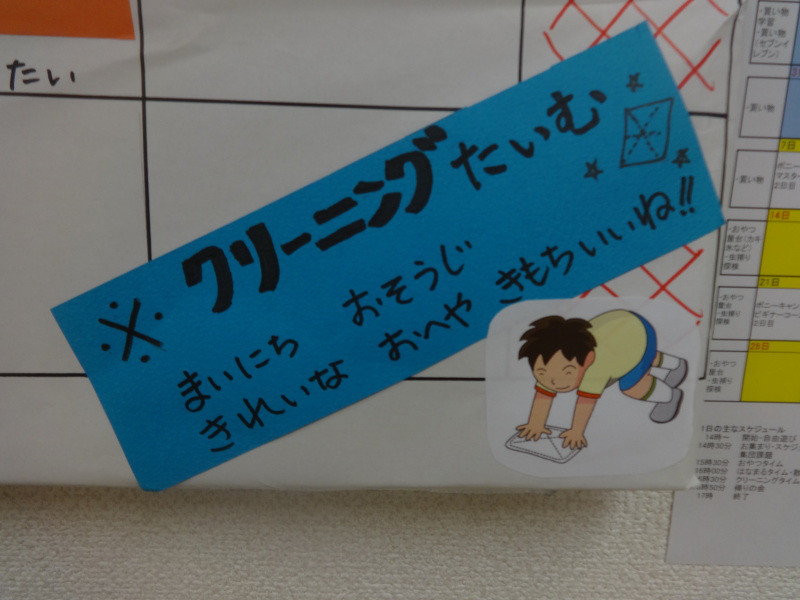 たい
※ クリーニングたいむ
まいにち おそうじ
きれいな おへや きもちいいね!!
・買い物
学習
・買い物
(セブンイ
レブン)
・買い物
7日
・買い物
ポニー
マスター
2日目
14日
・おやつ
屋台(カキ
氷など)
・虫捕り
探検
21日
・おやつ
屋台
・虫捕り
探検
ポニーキャン
ビギナーコー
2日目
28日
・おやつ
屋台
・虫捕り
探検
1日の主なスケジュール
14時～ 開始・自由遊び
14時30分 お集まり・スケジ
集団課題
15時30分 おやつタイム
はなまるタイム・
クリーニングタイム
帰りの会
17時 終了